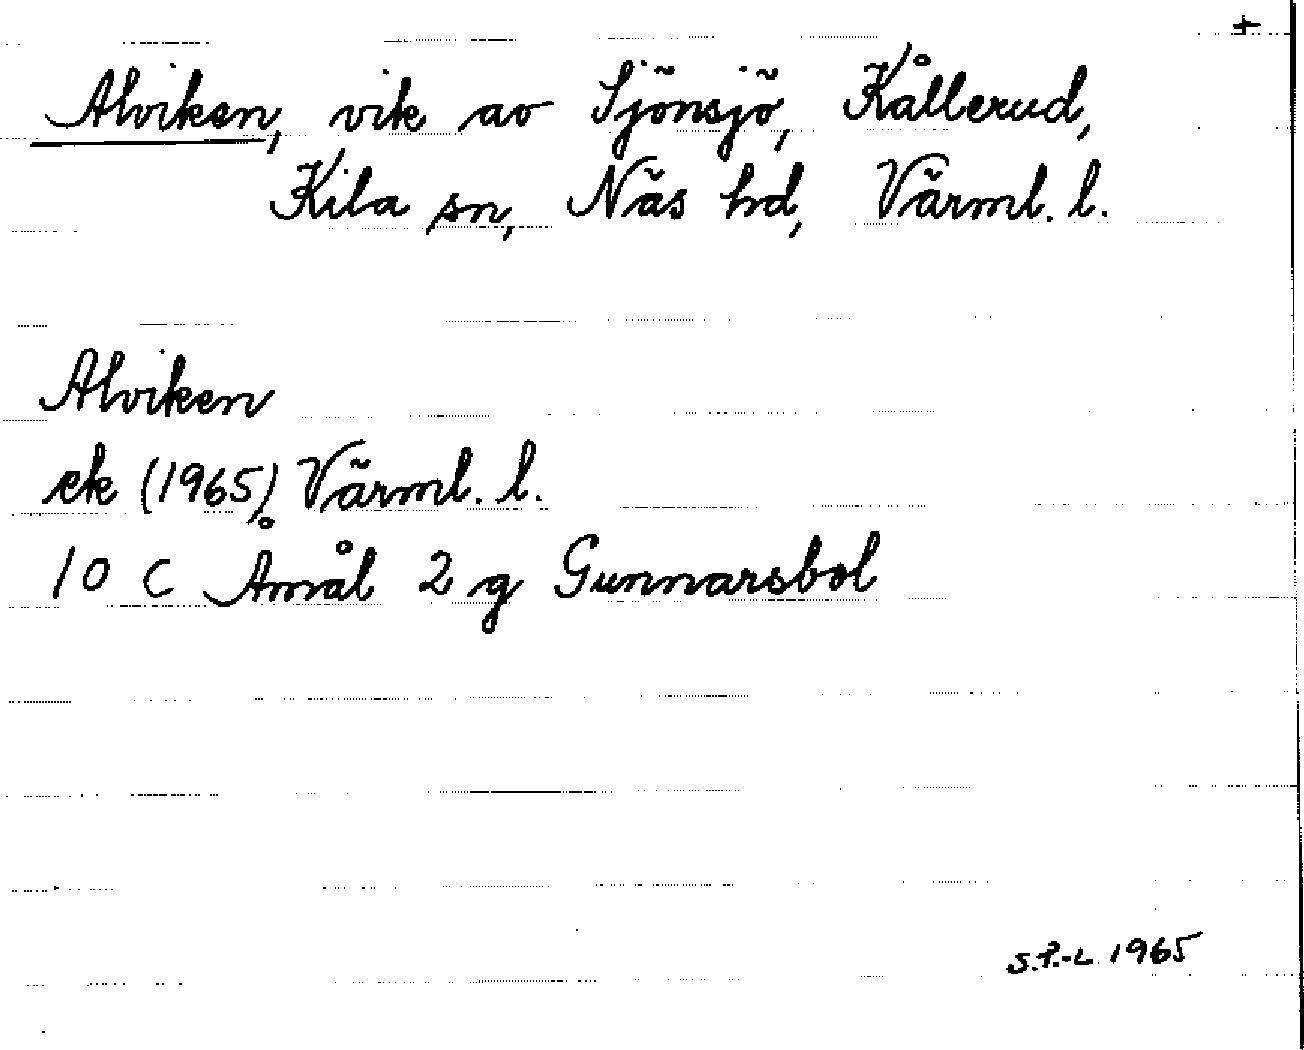 +
Alviken, vik av Sjönsjö, Kållerud,
Kila sn, Näs hd, Värml. l.
Alviken
ek (1965) Värml. l.
10 C Åmål 2 g Gunnarsbol
S.P.-L 1965